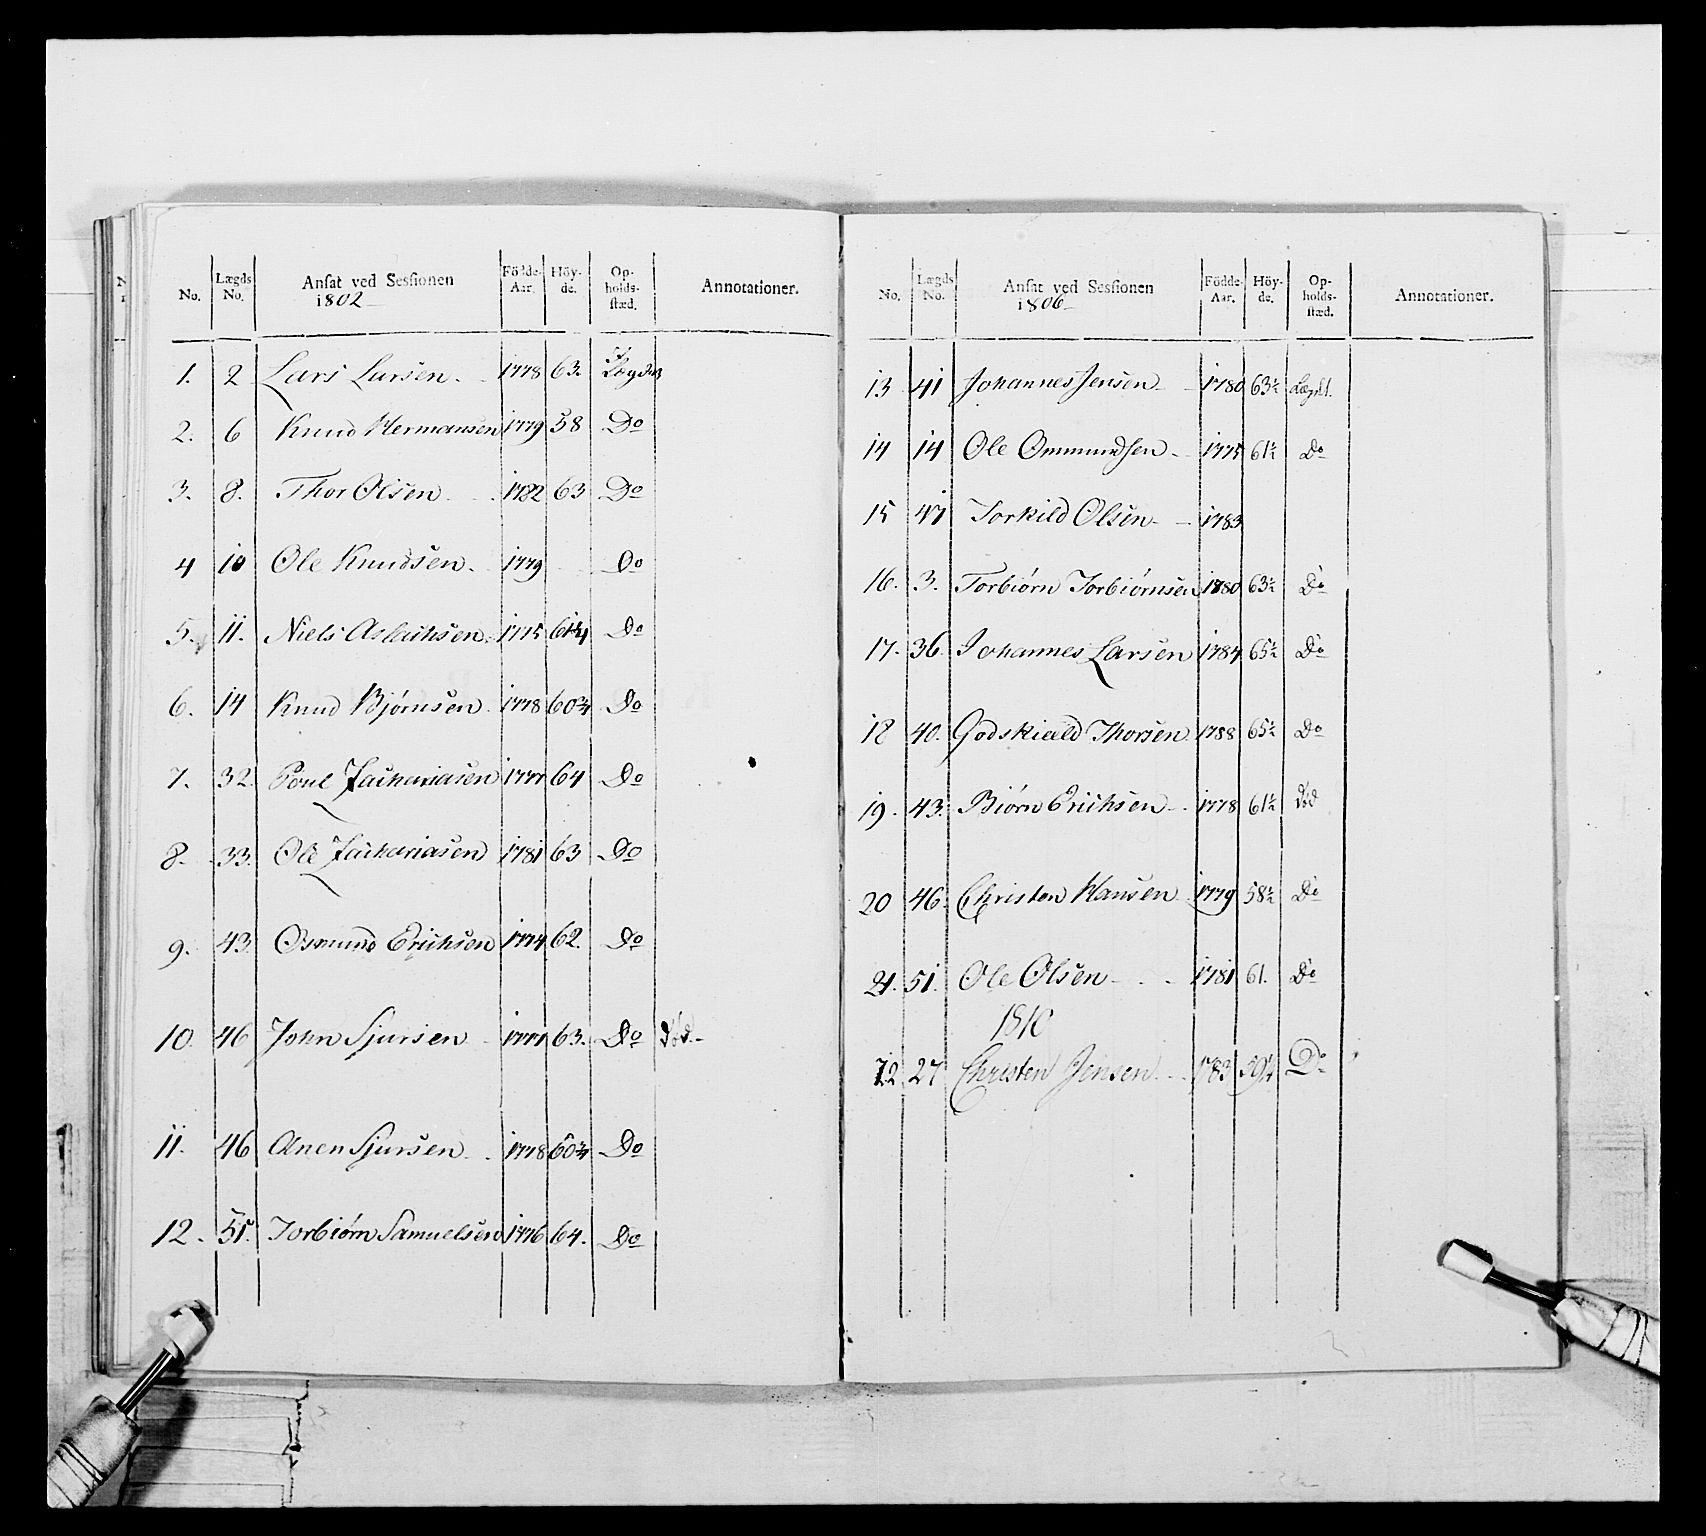 No. Lægds No. Ansat ved Sessionen 1802 Födde-Aar. Höy-de. Op-holds-stæd. Annotationer.
1. 2 Lars Larsen. 1778 63. I Lægdet
2. 6 Knud Hermansen 1779 58 Do
3. 8. Thor Olsen 1782 63 Do
4 10 Ole Knudsen. 1779 Do
5. 11. Niels Aslachsen. 1775 61 3/4 Do
6. 14 Knud Bjørnsen 1778 60 3/4 Do
7. 32. Poul Zachariasen 1777 64 Do
8. 33. Ole Zachariasen 1781 63 Do
9. 43. Osmund Erichsen 1774 62. Do
10. 46 John Sjursen 1771 63. Do død.
11. 46 Anen Sjursen. 1778 60 3/4 Do
12. 51. Torbiørn Samuelsen 1776 64. Do
No. Lægds No. Ansat ved Sessionen 1806 Födde-Aar. Höy-de. Op-holds-stæd. Annotationer.
13 41 Johannes Jensen 1780 63½ Lægdt.
14 14 Ole Ommundsen 1775 61½ Do
15 47 Torkild Olsen 1783
16. 3. Torbiørn Torbiørnsen 1780 63½ Do
17. 36 Johannes Larsen 1784 65½ Do
18 40. Godskield Thorsen 1788 65½ Do
19. 43. Biørn Erichsen 1778 61½ død
20 46. Christen Hansen 1779 58½ Do
21. 51. Ole Olsen 1781 61. Do
1810
22 27 Christen Jensen 1783 59¼ Do